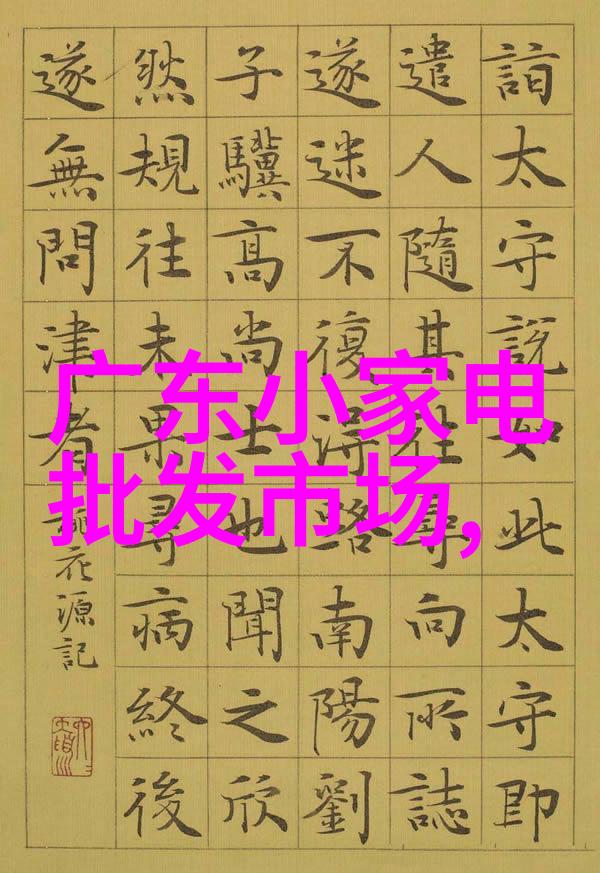 广东小家电
批发市场,
詣太守說如此太守即
遣人隨其往尋向所誌
遂迷不復得路南陽劉
子驥高尚士也聞之欣
然規往未果尋病終後
遂無問津者
桃花源記